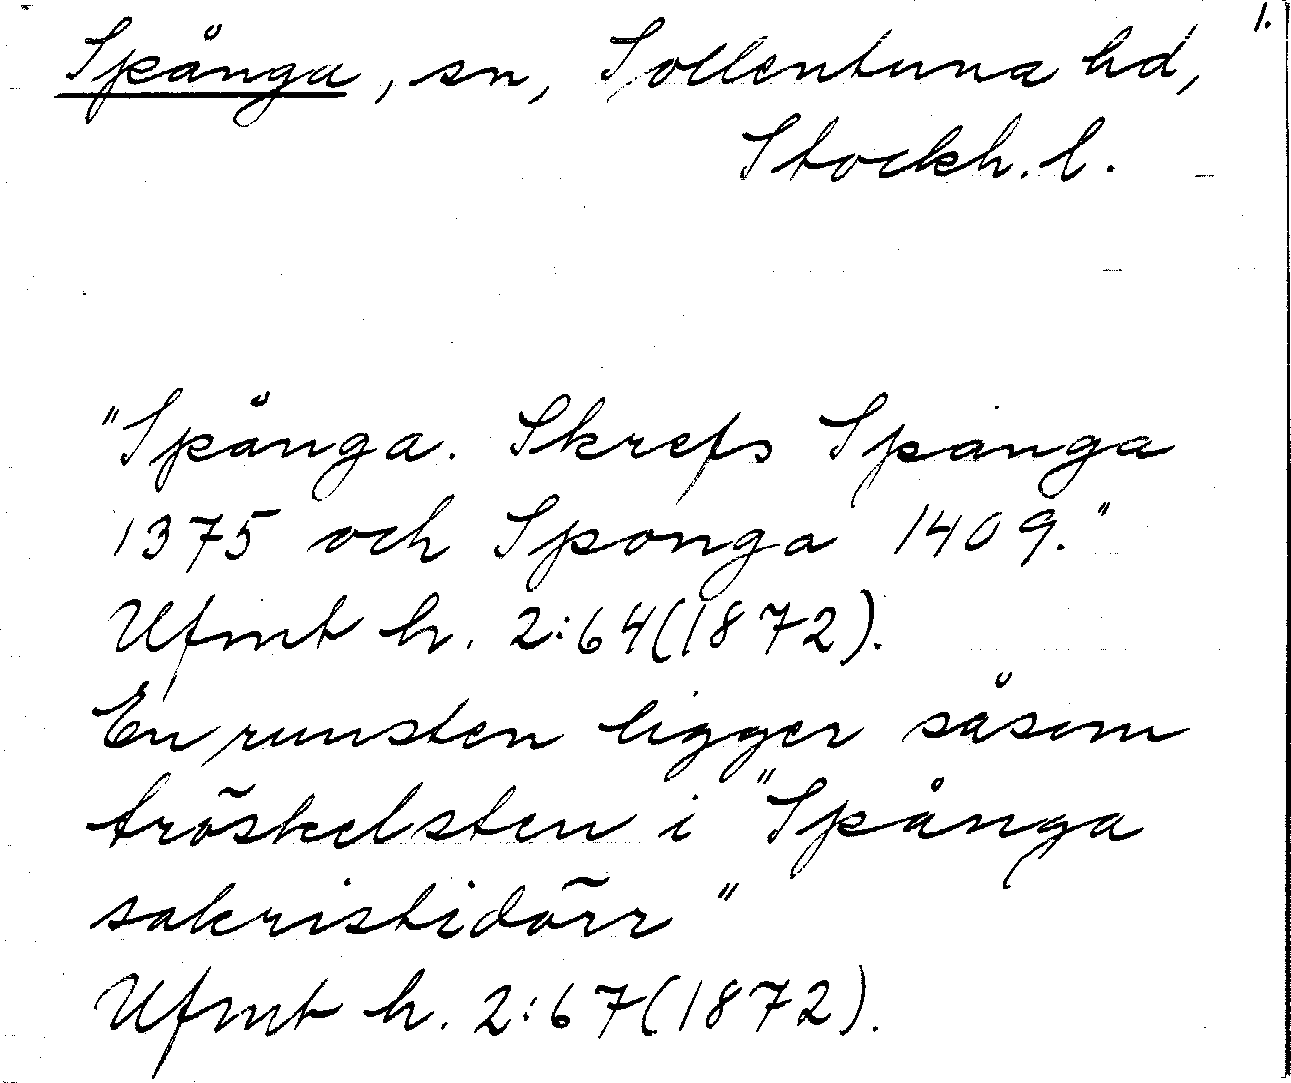 1.
Spånga, sn, Sollentuna hd,
Stockh. l.
"Spånga. Skrefs Spanga
1375 och Sponga 1409."
Ufmt h. 2:64(1872).
En runsten ligger såsom
tröskelsten i "Spånga
sakristidörr"
Ufmt h. 2:67(1872).